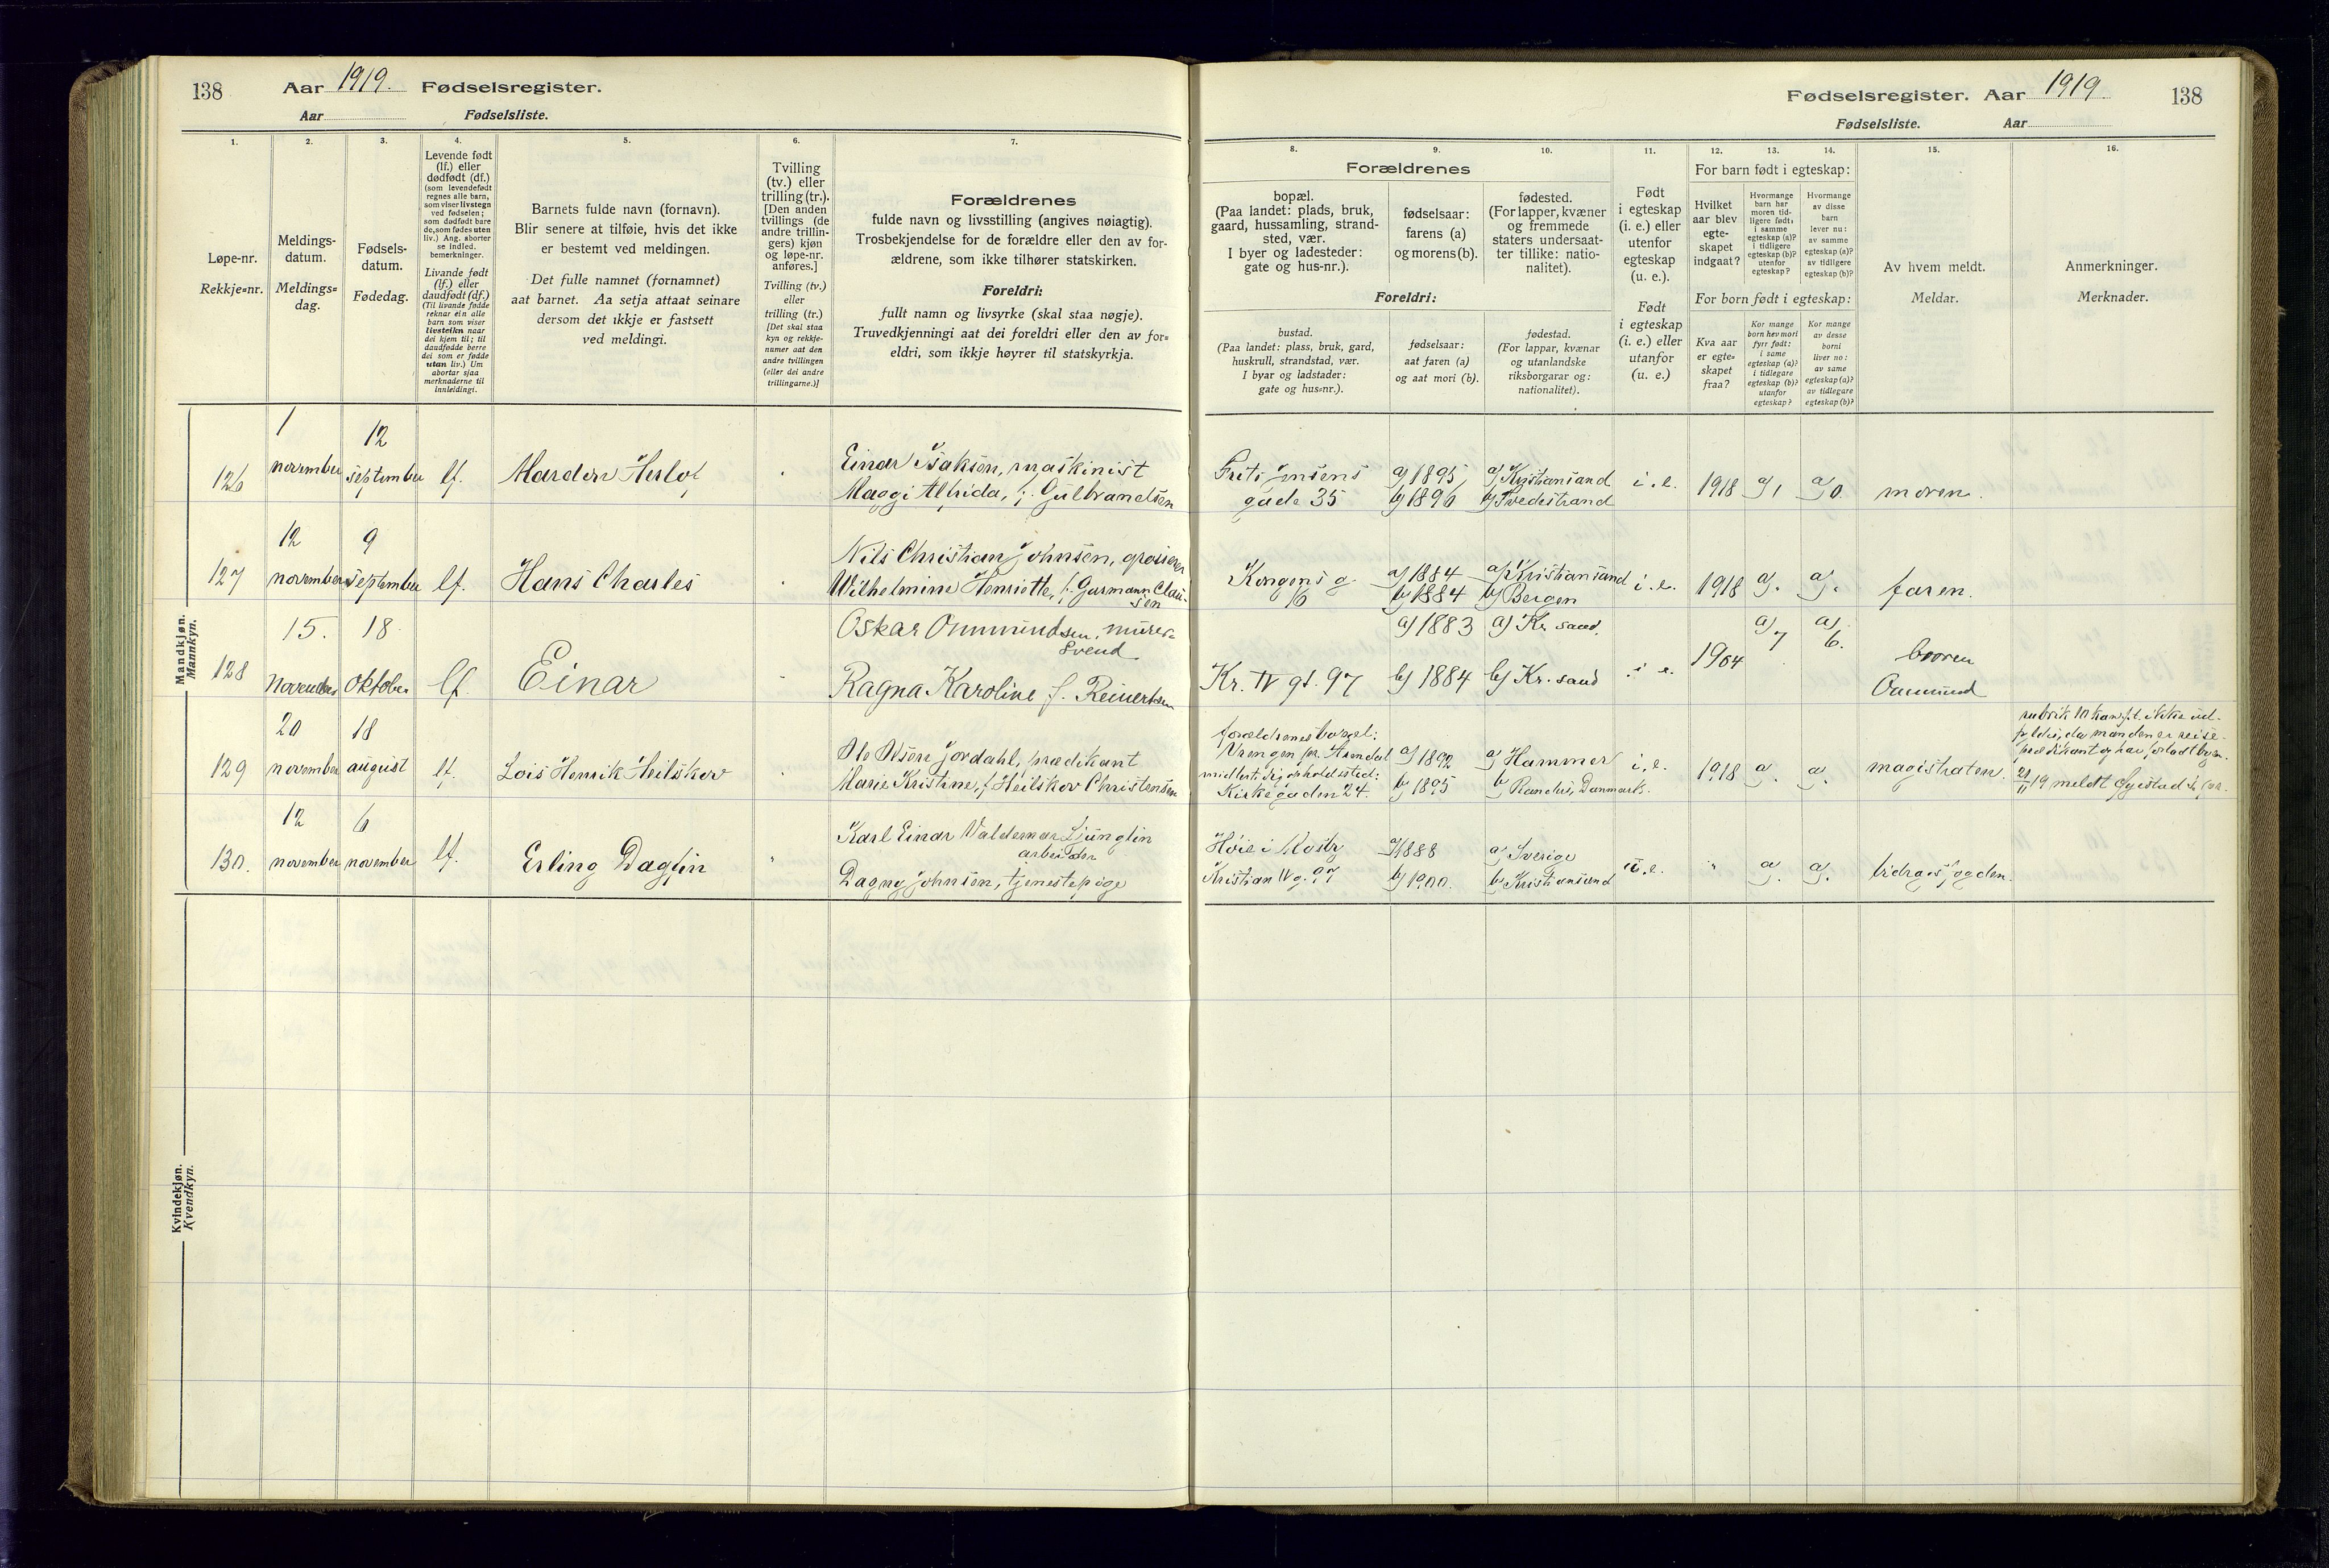 138
Aar 1919. Fødselsregister.
Aar Fødselsliste.
1.
Løpe-nr.
Rekkje=nr.
2.
Meldings-
datum.
Meldings=
dag.
3.
Fødsels-
datum.
Fødedag.
4.
Levende født
(lf.) eller
dødfødt (df.)
(som levendefødt
regnes alle barn,
som viser livstegn
ved fødselen;
som dødfødt bare
de, som fødes uten
liv.) Ang. aborter
se indled.
bemerkninger.
Livande født
(lf.) eller
daudfødt (df.)
(Til livande fødde
reknar ein alle
barn som viser
livsteikn naar
dei kjem til; til
daudfødde berre
dei som er fødde
utan liv.) Um
abortar sjaa
merknaderne til
innleidingi.
5.
Barnets fulde navn (fornavn).
Blir senere at tilføie, hvis det ikke
er bestemt ved meldingen.
Det fulle namnet (fornamnet)
aat barnet. Aa setja attaat seinare
dersom det ikkje er fastsett
ved meldingi.
6.
Tvilling
(tv.) eller
trilling (tr.).
[Den anden
tvillings (de
andre trillin-
gers) kjøn
og løpe-nr.
anføres.]
Tvilling (tv.)
eller
trilling (tr.)
[Det skal staa
kyn og rekkje-
numer aat den
andre tvillingen
(eller dei andre
trillingarne.)]
7.
Forældrenes
fulde navn og livsstilling (angives nøiagtig).
Trosbekjendelse for de forældre eller den av for-
ældrene, som ikke tilhører statskirken.
Foreldri:
fullt namn og livsyrke (skal staa nøgje).
Truvedkjenningi aat dei foreldri eller den av for=
eldri, som ikkje høyrer til statskyrkja.
Mandkjøn.
Mannkyn.
1 12
126 november september lf. Einar Isaksen, maskinist
Maggi Alfrida, f. Gulbrandsen
12 9
127 november september lf. Hans Charles Nils Christian Johnsen, grosserer
Wilhelmine Henriette, f. Garmann Clau-
sen
15. 18
128 November Oktober lf. Einar Oskar Ommundsen, murer-
svend
Ragna Karoline f. Reinertsen
20 18
129 november august lf. Lois Henrik Heilskov Ole Olsen Jordahl, prædikant
Marie Kristine, f. Heilskov Christensen
12 6
130. november november lf. Erling Dagfin Karl Einar Valdemar Ljunglin
arbeider
Dagny Johnsen, tjenestepige
Kvindekjøn.
Kvendkyn.
Fødselsregister. Aar 1919. 138
Fødselsliste. Aar
8. 9. 10.
Forældrenes
bopæl.
(Paa landet: plads, bruk,
gaard, hussamling, strand-
sted, vær.
I byer og ladesteder:
gate og hus-nr.).
fødselsaar:
farens (a)
og morens (b).
fødested.
(For lapper, kvæner
og fremmede
staters undersaat-
ter tillike: natio-
nalitet).
Foreldri:
bustad.
(Paa landet: plass, bruk, gard,
huskrull, strandstad, vær.
I byar og ladstader:
gate og hus=nr.).
fødselsaar:
aat faren (a)
og aat mori (b).
fødestad.
(For lappar, kvænar
og utanlandske
riksborgarar og:
nationalitet).
11.
Født
i egteskap
(i. e.) eller
utenfor
egteskap
(u. e.).
Født
i egteskap
(i. e.) eller
utanfor
(u. e.)
12. 13. 14.
For barn født i egteskap:
Hvilket
aar blev
egte-
skapet
indgaat?
Hvormange
barn har
moren tid-
ligere født:
i samme
egteskap (a)?
i tidligere
egteskap (b)?
utenfor
egteskap?
Hvormange
av disse
barn
lever nu:
av samme
egteskap (a)?
av tidligere
egteskap (b)?
For born født i egteskap:
Kva aar
er egte-
skapet
fraa?
Kor mange
born hev mori
fyrr født:
i same
egteskap (a)?
i tidlegare
egteskap (b)?
utanfor
egteskap?
Kor mange
av desse
borni
liver no:
av same
egteskap (a)?
av tidlegare
egteskap (b)?
15.
Av hvem meldt.
Meldar.
16.
Anmerkninger.
Merknader.
Frits Jensens a) 1895 a) Kristiansand i. e. 1918 a) 1 a) 0 moren.
gade 35 b) 1896 b) Tvedestrand
Kongens g. a) 1884 a) Kristiansand i. e. 1918 a). a). faren.
16 b) 1884 b) Bergen
a) 1883 a) Kr. sand. a) 7 a) 6.
Kr. IV gt. 97 b) 1884 b) Kr. sand i e. 1904
Ommund
forældrenes bopæl:
Vrengen pr. Arendal a) 1892 a) Hammer i. e. 1918 a). a). magistraten.
midlertidig opholdssted: b) 1895 b) Randers, Danmark.
Kirkegaden 24.
rubrik 10 kan f. t. ikke ud-
fyldes, da manden er reise-
prædikant og har forladt byen.
21/11 19 meldt Øyestad
Høie i a) 1888 a) Sverige u. e. " a). a). bidragsfogden.
Kristian IV g. 97 b) 1900. b) Kristiansand